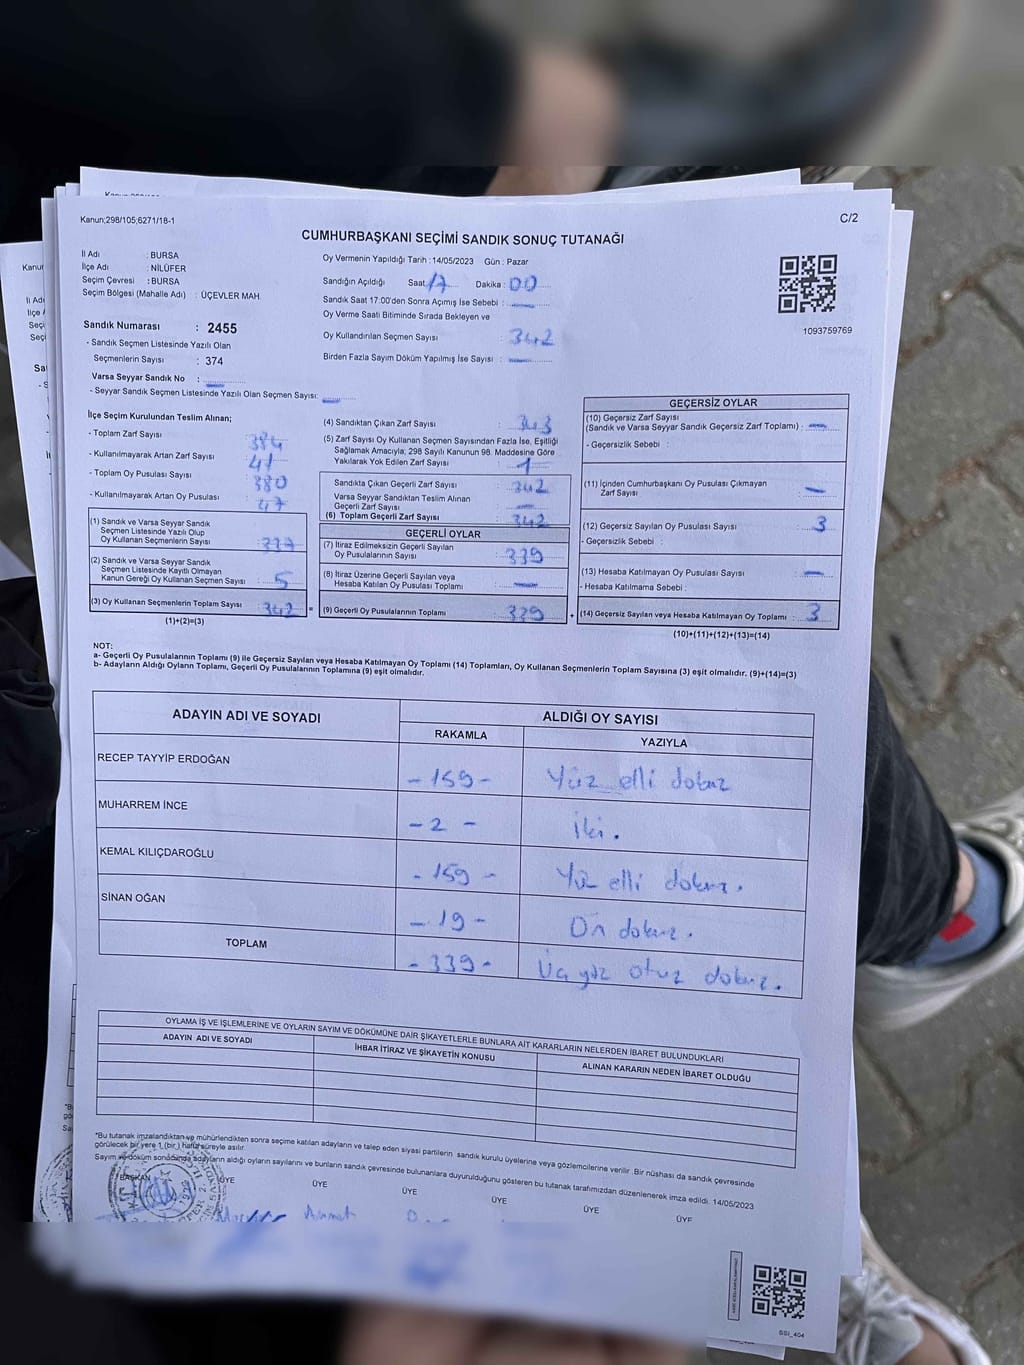 Kanun;298/105;6271/18-1
C/2
CUMHURBAŞKANI SEÇİMİ SANDIK SONUÇ TUTANAĞI
İl Adı : BURSA
İlçe Adı : NİLÜFER
Seçim Çevresi : BURSA
Seçim Bölgesi (Mahalle Adı) : ÜÇEVLER MAH.
Sandık Numarası : 2455
- Sandık Seçmen Listesinde Yazılı Olan
Seçmenlerin Sayısı : 374
Varsa Seyyar Sandık No :
- Seyyar Sandık Seçmen Listesinde Yazılı Olan Seçmen Sayısı:
Oy Vermenin Yapıldığı Tarih : 14/05/2023 Gün : Pazar
Sandığın Açıldığı Saat: 17 Dakika : 00
Sandık Saat 17:00'den Sonra Açımış İse Sebebi :
Oy Verme Saati Bitiminde Sırada Bekleyen ve
Oy Kullandırılan Seçmen Sayısı : 342
Birden Fazla Sayım Döküm Yapılmış İse Sayısı :
1093759769
İlçe Seçim Kurulundan Teslim Alınan;
- Toplam Zarf Sayısı : 384
- Kullanılmayarak Artan Zarf Sayısı : 41
- Toplam Oy Pusulası Sayısı : 380
- Kullanılmayarak Artan Oy Pusulası : 47
(1) Sandık ve Varsa Seyyar Sandık
Seçmen Listesinde Yazılı Olup
Oy Kullanan Seçmenlerin Sayısı : 337
(2) Sandık ve Varsa Seyyar Sandık
Seçmen Listesinde Kayıtlı Olmayan
Kanun Gereği Oy Kullanan Seçmen Sayısı : 5
(3) Oy Kullanan Seçmenlerin Toplam Sayısı : 342 =
(1)+(2)=(3)
(4) Sandıktan Çıkan Zarf Sayısı : 343
(5) Zarf Sayısı Oy Kullanan Seçmen Sayısından Fazla İse, Eşitliği
Sağlamak Amacıyla; 298 Sayılı Kanunun 98. Maddesine Göre
Yakılarak Yok Edilen Zarf Sayısı : 1
Sandıkta Çıkan Geçerli Zarf Sayısı : 342
Varsa Seyyar Sandıktan Teslim Alınan
Geçerli Zarf Sayısı :
(6) Toplam Geçerli Zarf Sayısı : 342
GEÇERLİ OYLAR
(7) İtiraz Edilmeksizin Geçerli Sayılan
Oy Pusulalarının Sayısı : 339
(8) İtiraz Üzerine Geçerli Sayılan veya
Hesaba Katılan Oy Pusulası Toplamı :
(9) Geçerli Oy Pusulalarının Toplamı : 339 +
GEÇERSİZ OYLAR
(10) Geçersiz Zarf Sayısı
(Sandık ve Varsa Seyyar Sandık Geçersiz Zarf Toplamı) :
- Geçersizlik Sebebi :
(11) İçinden Cumhurbaşkanı Oy Pusulası Çıkmayan
Zarf Sayısı :
(12) Geçersiz Sayılan Oy Pusulası Sayısı : 3
- Geçersizlik Sebebi :
(13) Hesaba Katılmayan Oy Pusulası Sayısı :
- Hesaba Katılmama Sebebi :
(14) Geçersiz Sayılan veya Hesaba Katılmayan Oy Toplamı : 3
(10)+(11)+(12)+(13)=(14)
NOT:
a- Geçerli Oy Pusulalarının Toplamı (9) ile Geçersiz Sayılan veya Hesaba Katılmayan Oy Toplamı (14) Toplamları, Oy Kullanan Seçmenlerin Toplam Sayısına (3) eşit olmalıdır. (9)+(14)=(3)
b- Adayların Aldığı Oyların Toplamı, Geçerli Oy Pusulalarının Toplamına (9) eşit olmalıdır.
ADAYIN ADI VE SOYADI
ALDIĞI OY SAYISI
RAKAMLA
YAZIYLA
RECEP TAYYİP ERDOĞAN - 159 - Yüz elli dokuz
MUHARREM İNCE - 2 - İki.
KEMAL KILIÇDAROĞLU - 159 - Yüz elli dokuz.
SİNAN OĞAN - 19 - On dokuz.
TOPLAM - 339 - Üç yüz otuz dokuz.
OYLAMA İŞ VE İŞLEMLERİNE VE OYLARIN SAYIM VE DÖKÜMÜNE DAİR ŞİKAYETLERLE BUNLARA AİT KARARLARIN NELERDEN İBARET BULUNDUKLARI
ADAYIN ADI VE SOYADI
İHBAR İTİRAZ VE ŞİKAYETİN KONUSU
ALINAN KARARIN NEDEN İBARET OLDUĞU
*Bu tutanak imzalandıktan ve mühürlendikten sonra seçime katılan adayların ve talep eden siyasi partilerin sandık kurulu üyelerine veya gözlemcilerine verilir. Bir nüshası da sandık çevresinde
görülecek bir yere 1 (bir) hafta süreyle asılır.
Sayım ve döküm sonucunda adayların aldığı oyların sayılarını ve bunların sandık çevresinde bulunanlara duyurulduğunu gösteren bu tutanak tarafımızdan düzenlenerek imza edildi. 14/05/2023
BAŞKAN ÜYE ÜYE ÜYE ÜYE ÜYE ÜYE
Ahmet
SSI_404